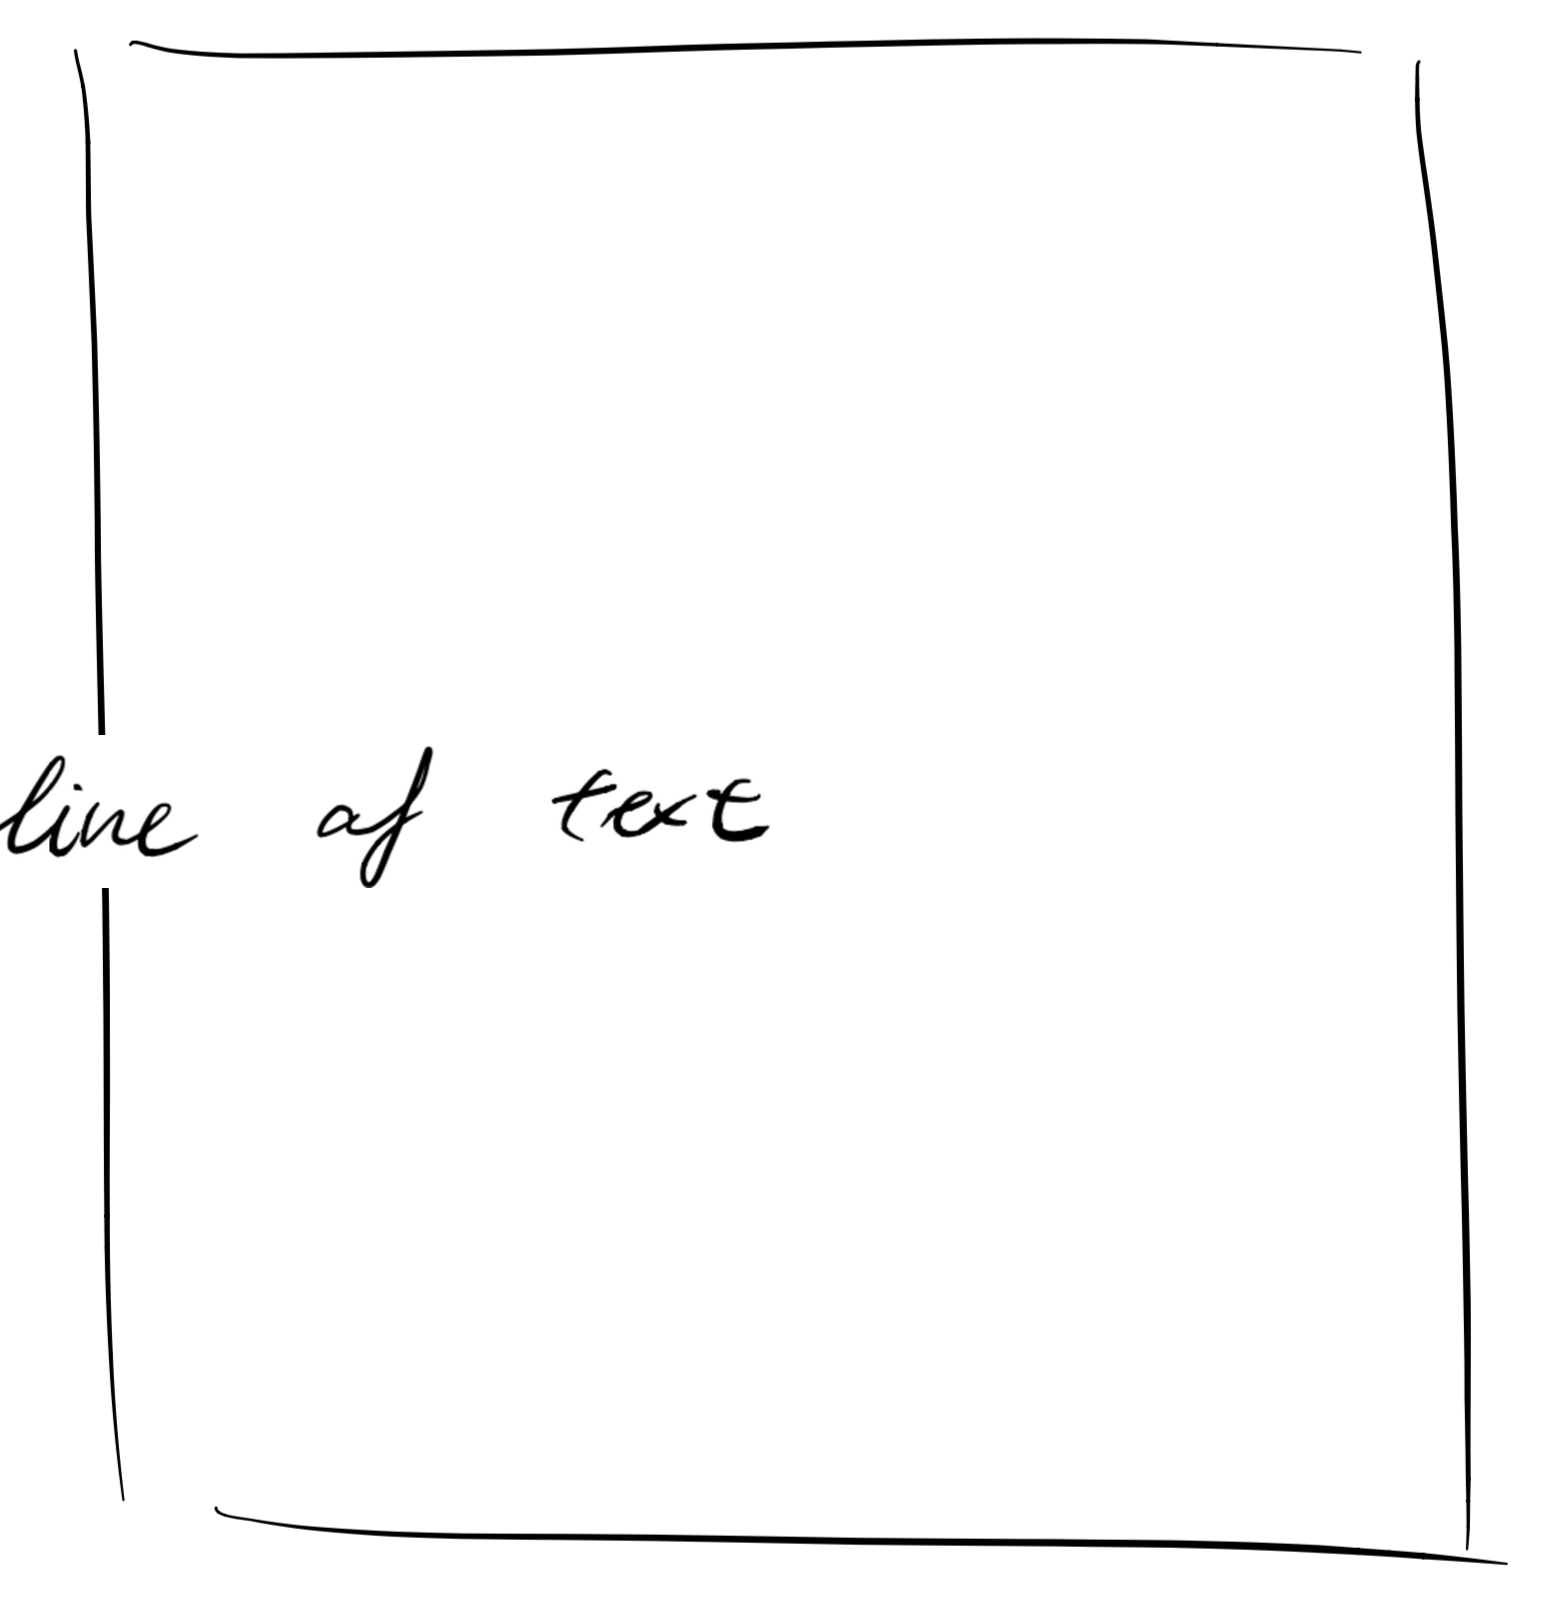 line of text